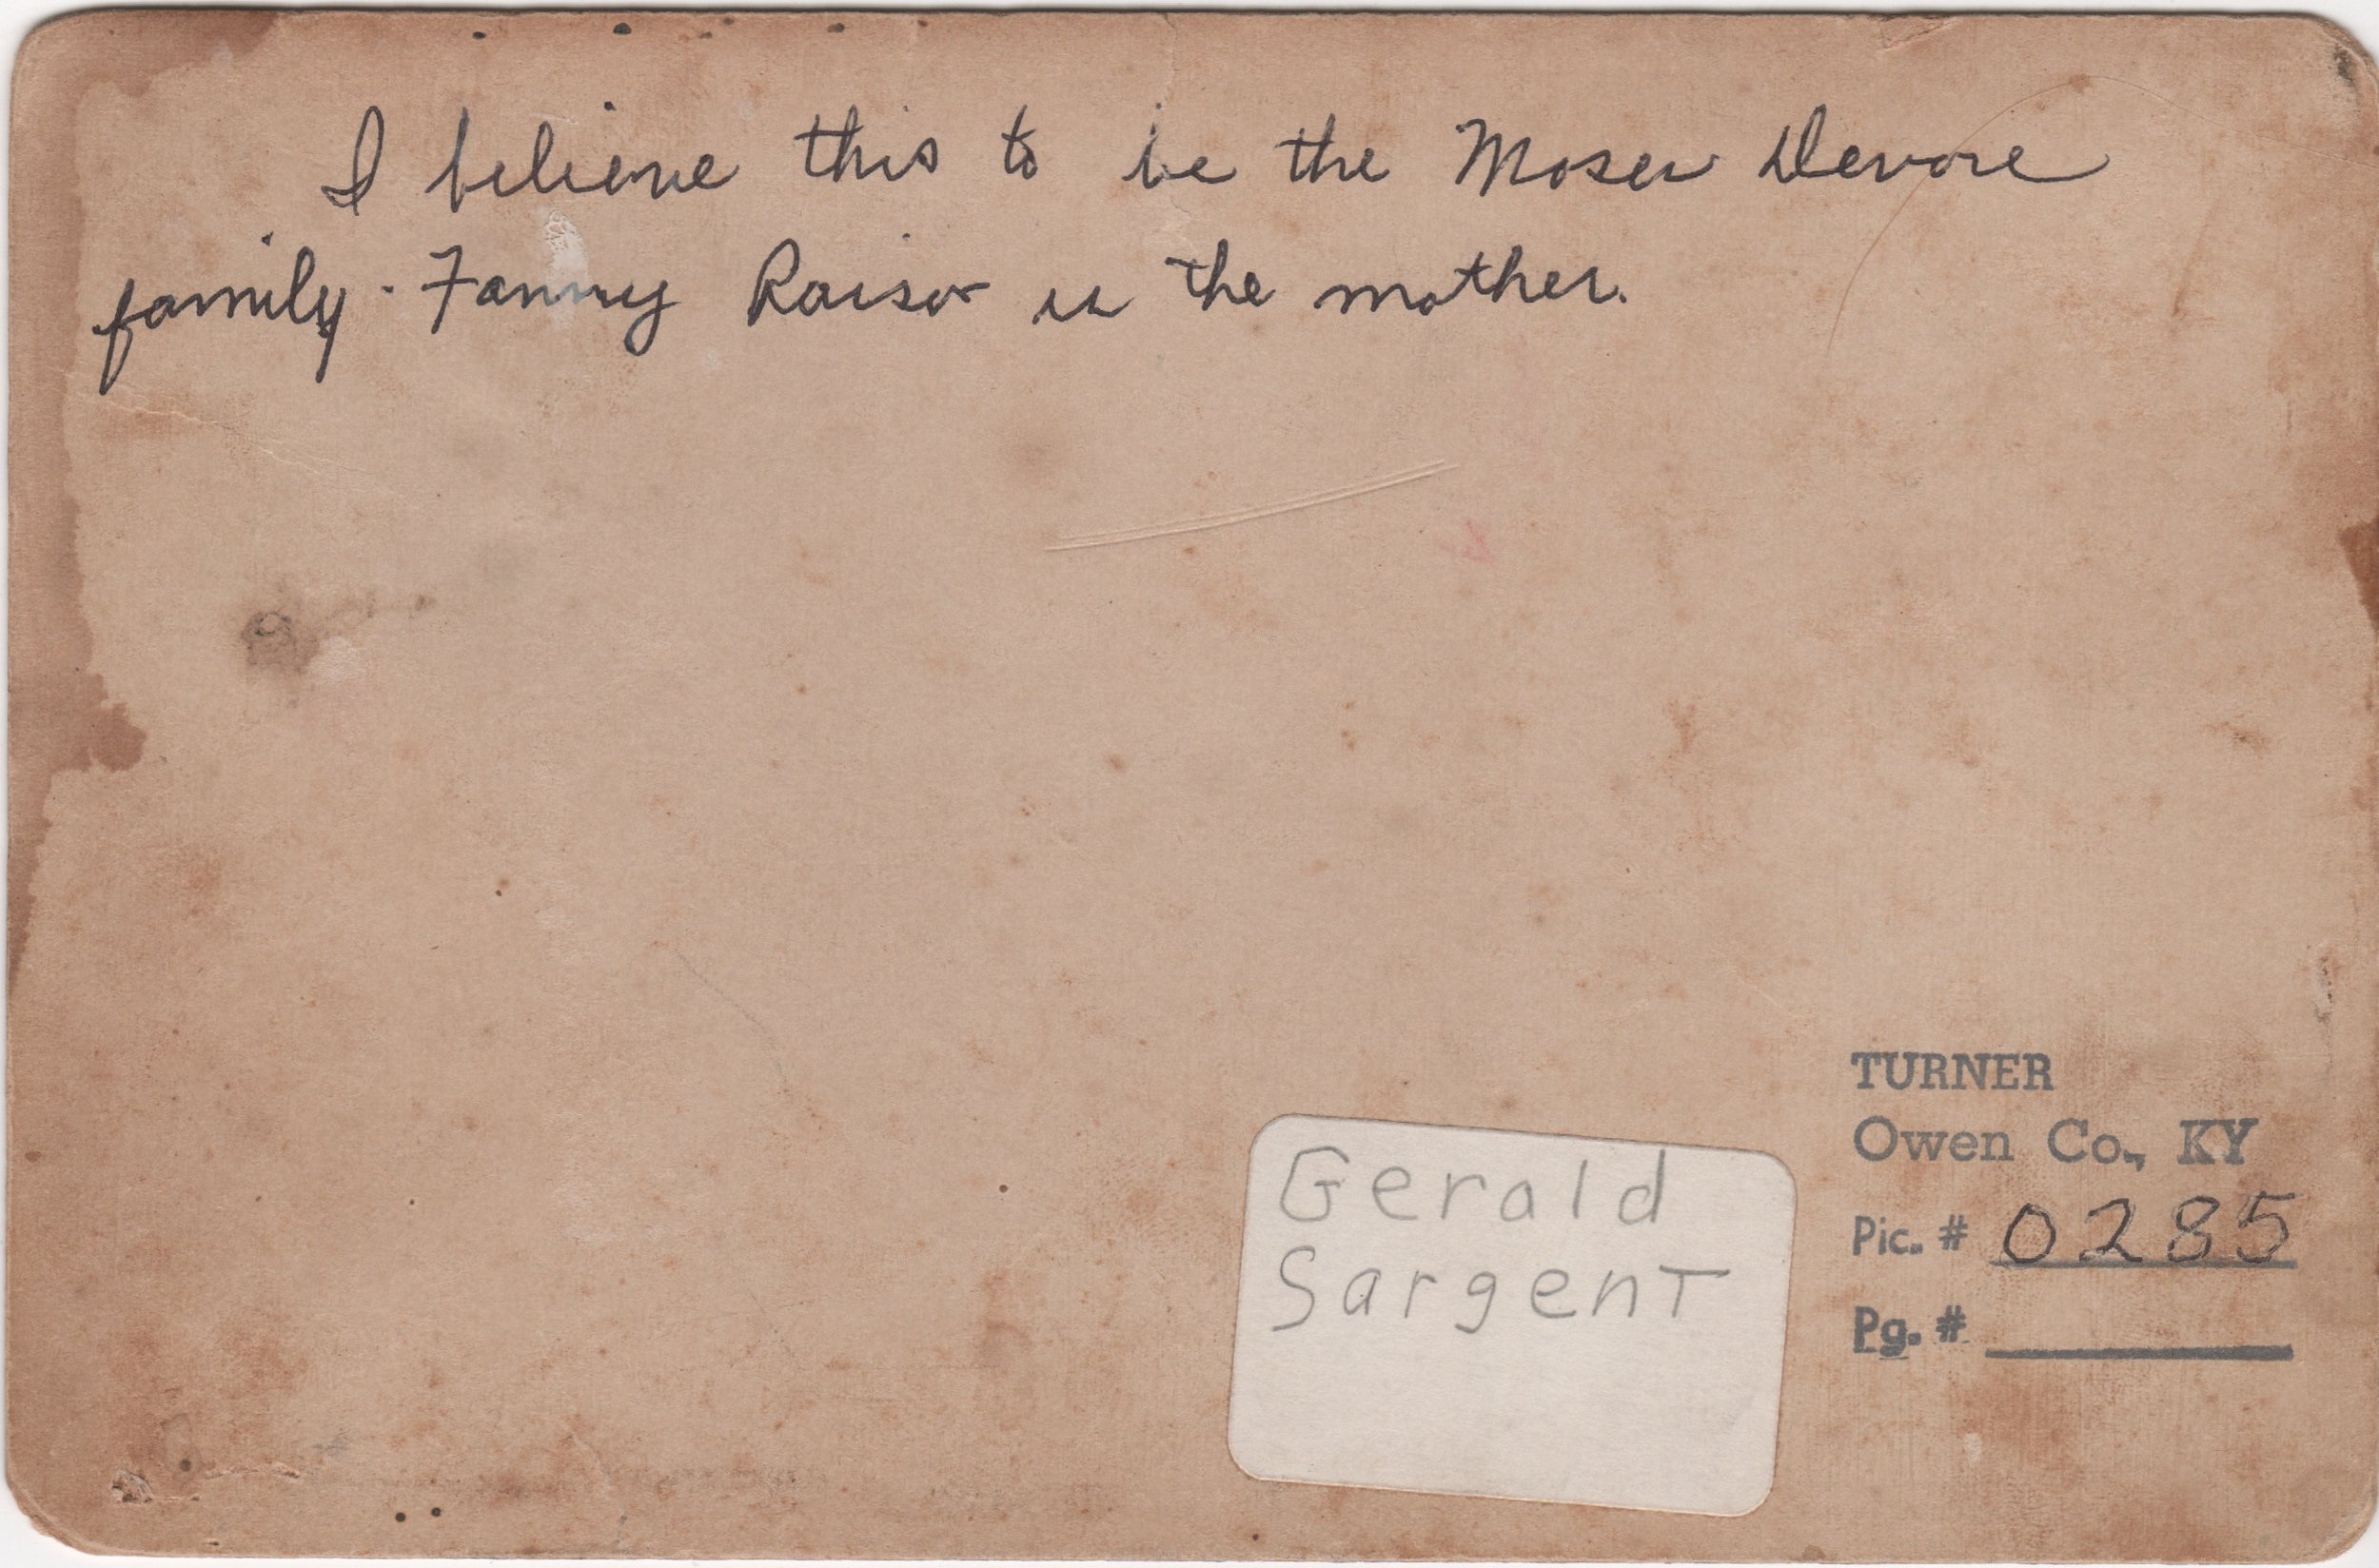 I believe this to be the Moses Devore
family. Fanny Raisor is the mother.
Gerald
Sargent
TURNER
Owen Co., KY
Pic. # 0285
Pg. #